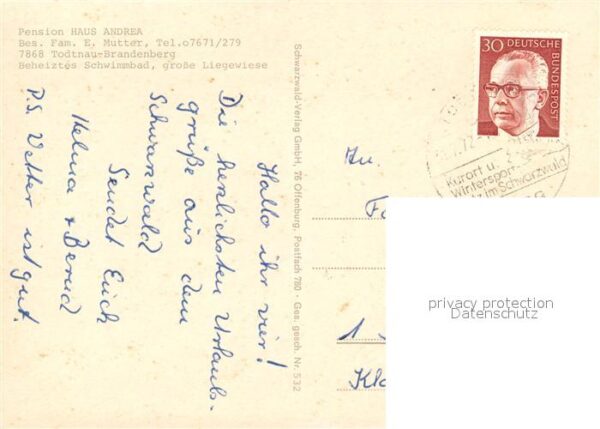 Pension HAUS ANDREA
Bes. Fam. E. Mutter, Tel.o7671/279
7868 Todtnau-Brandenberg
Beheiztes Schwimmbad, große Liegewiese
Hallo ihr vier!
Die herzlichsten Urlaubs-
grüße aus dem
Schwarzwald
Sendet Euch
Helma + Bernd
P.S. Wetter ist gut.
Schwarzwald-Verlag GmbH, 76 Offenburg, Postfach 780 · Ges. gesch. Nr. 532
30 DEUTSCHE
BUNDESPOST
Kurort u.
Wintersport-
im Schwarzwald
An
1
privacy protection
Datenschutz